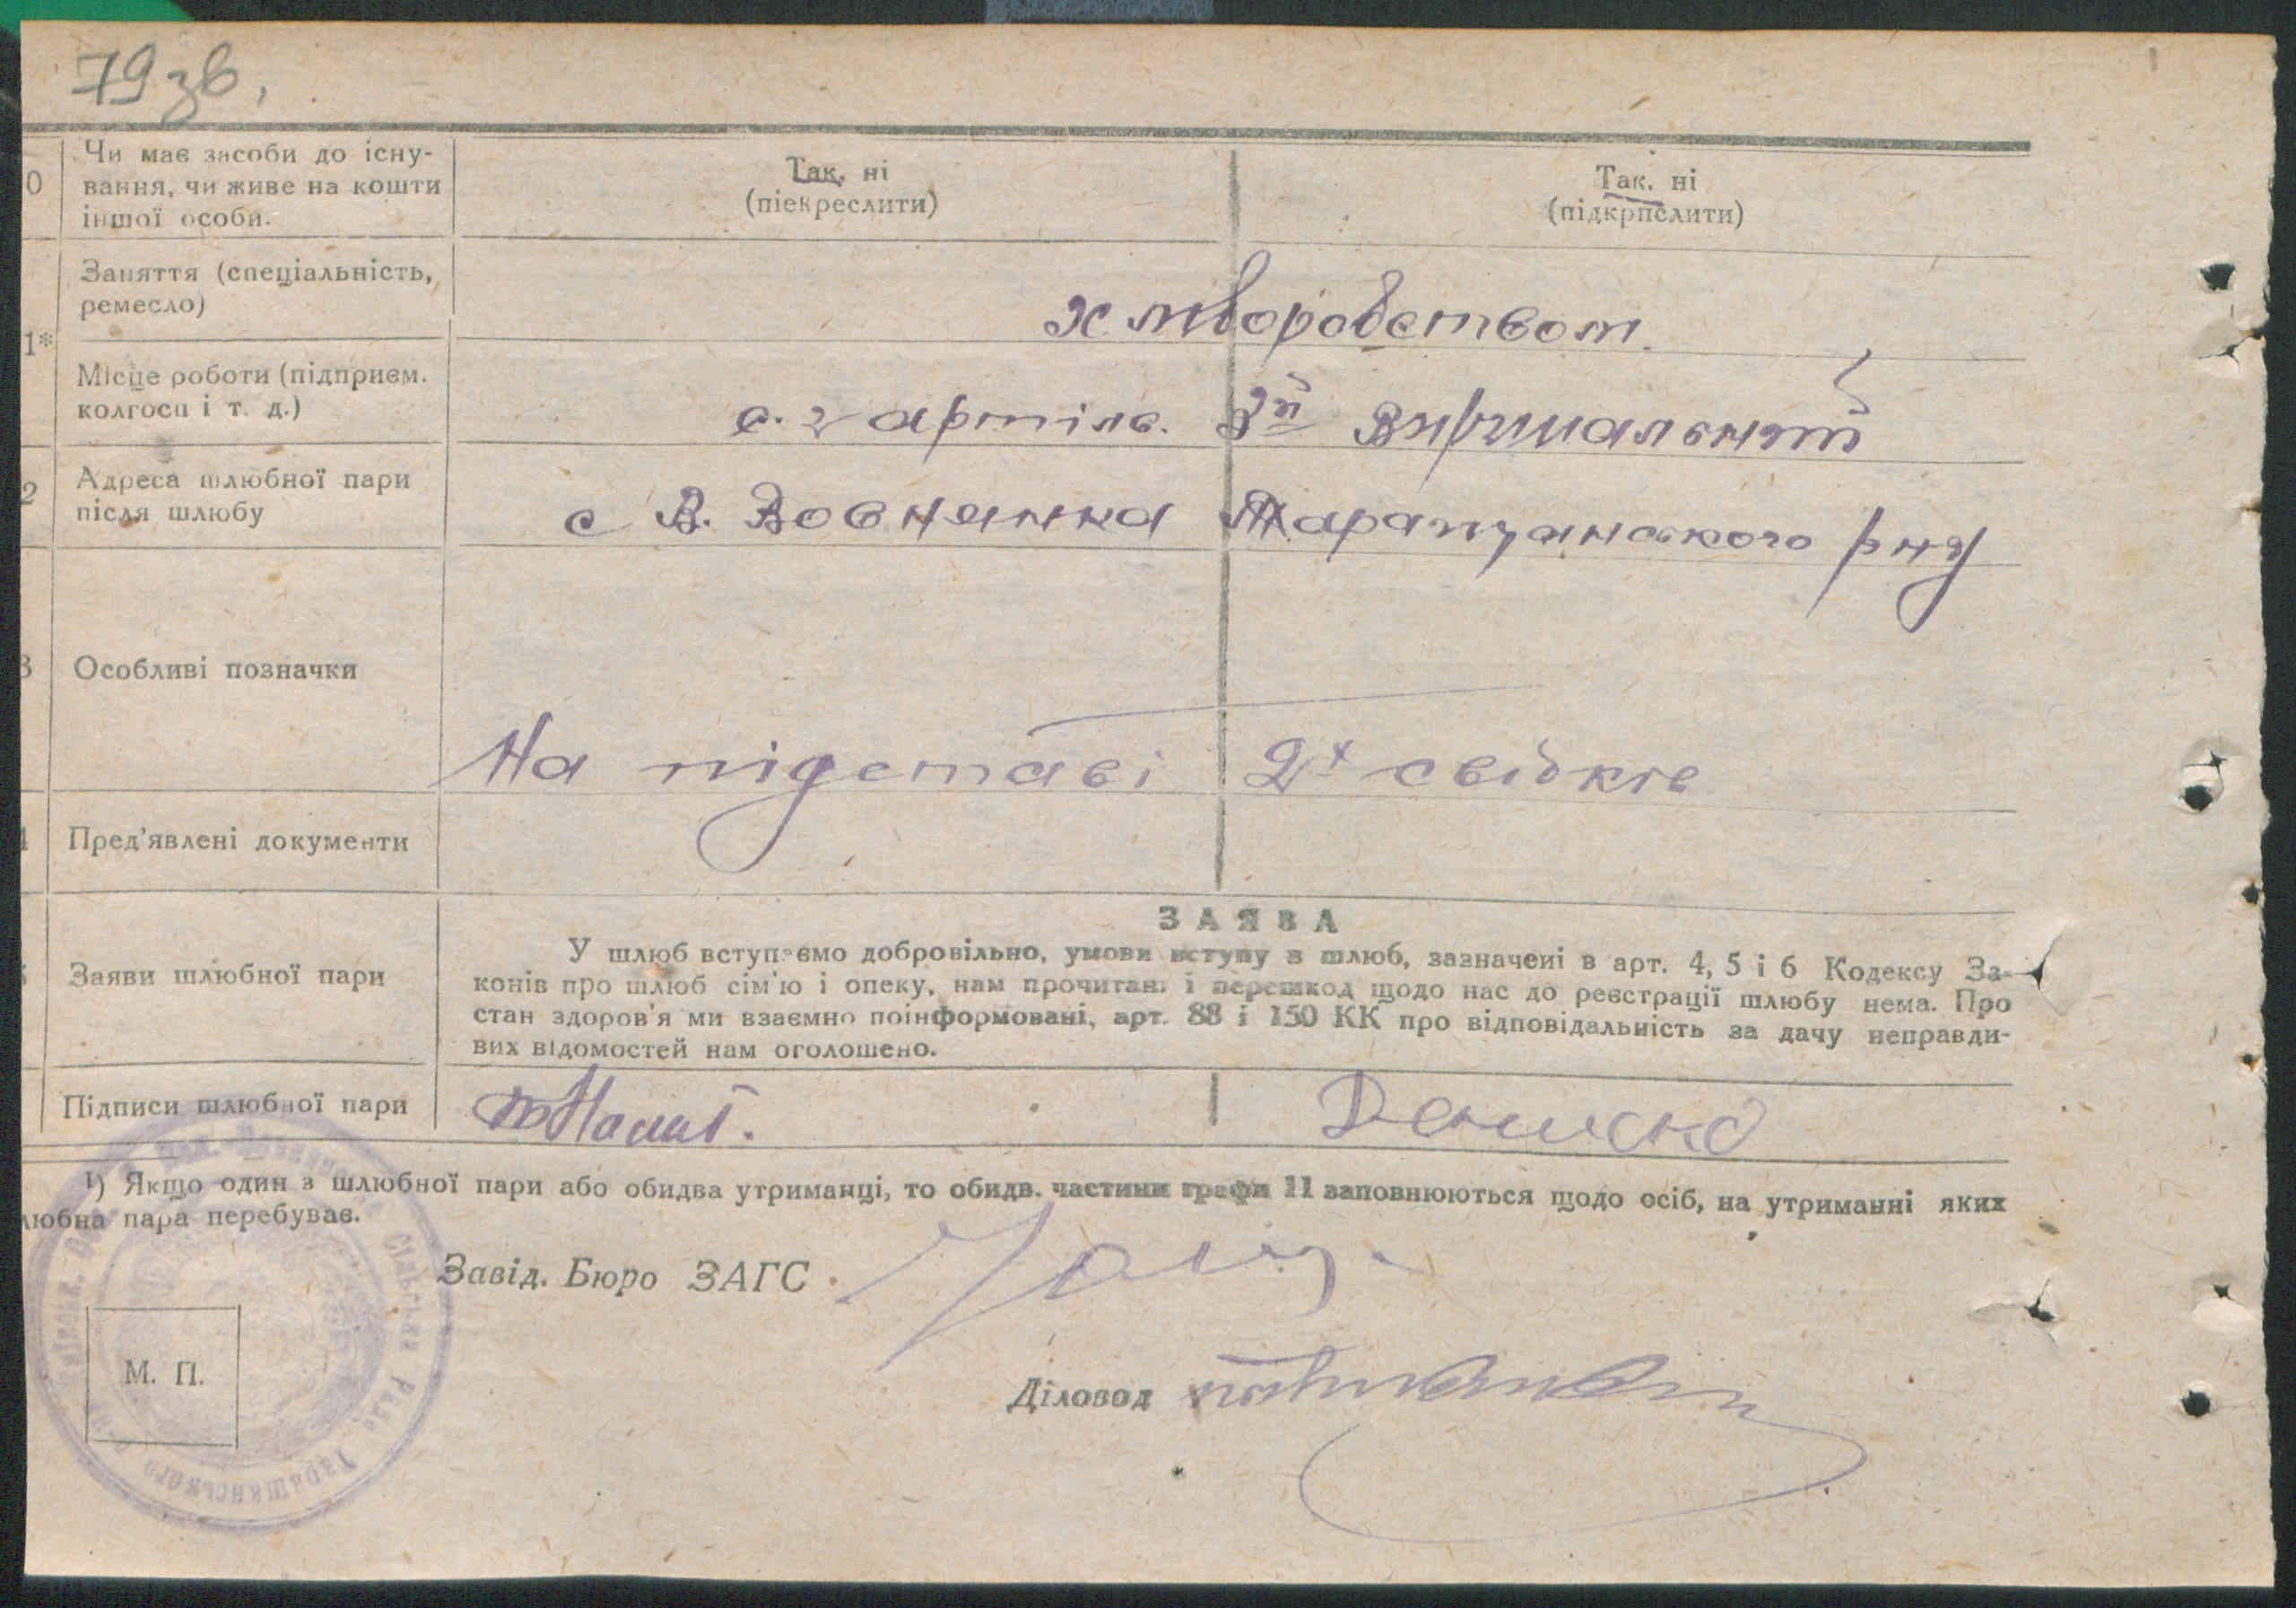 79 зв,
0
Чи має засоби до існу-
вання, чи живе на кошти
іншої особи.
Так, ні
(піекреслити)
Так, ні
(підкрпслити)
1*
Заняття (спеціальність,
ремесло)
хліборобством
Місце роботи (підприєм.
колгосп і т. д.)
с. г артіль. 3й Вирішальний
2
Адреса шлюбної пари
після шлюбу
с В. Вовнянка Таращанского рну
3
Особливі позначки
На підставі 2х свідків
Пред'явлені документи
Заяви шлюбної пари
ЗАЯВА
У шлюб вступаємо добровільно, умови вступу в шлюб, зазначені в арт. 4, 5 і 6 Кодексу За-
конів про шлюб сім'ю і опеку, нам прочитані і перешкод щодо нас до реєстрації шлюбу нема. Про
стан здоров'я ми взаємно поінформовані, арт. 88 і 150 КК про відповідальність за дачу неправди-
вих відомостей нам оголошено.
Підписи шлюбної пари
¹) Якщо один з шлюбної пари або обидва утриманці, то обидв. частини графи 11 заповнюються щодо осіб, на утриманні яких
любна пара перебуває.
Завід. Бюро ЗАГС
Діловод
М. П.
Сільська Рада Таращанського